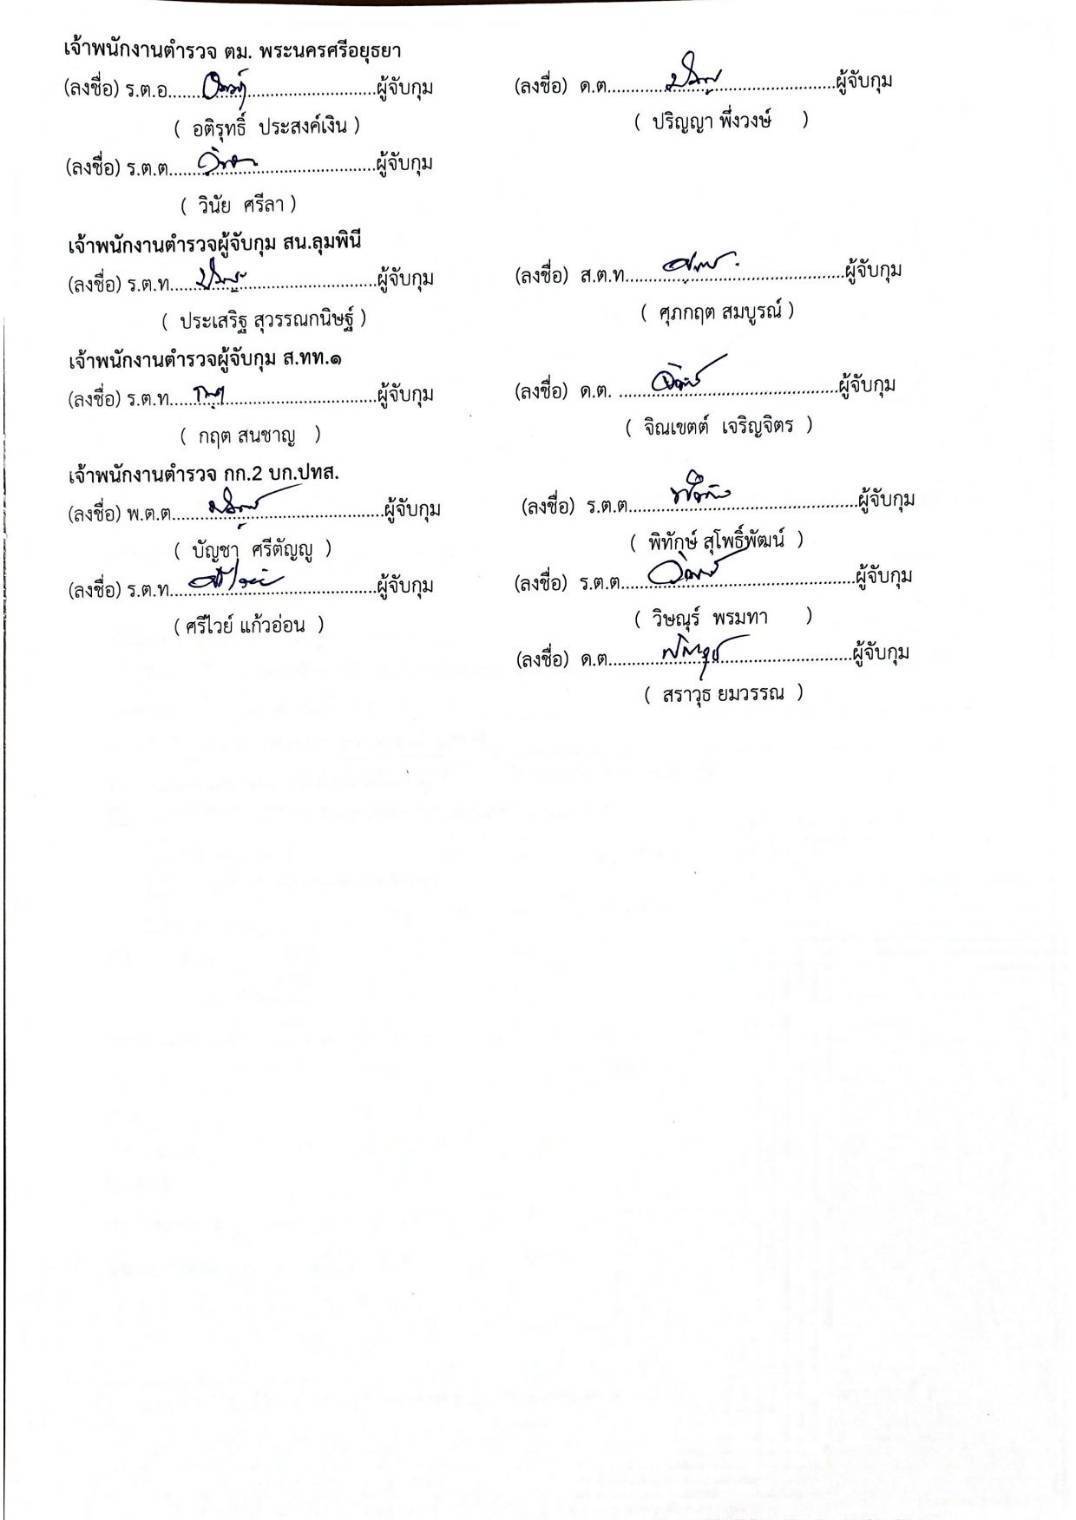 เจ้าพนักงานตำรวจ ตม. พระนครศรีอยุธยา
(ลงชื่อ) ร.ต.อ.......................................ผู้จับกุม (ลงชื่อ) ด.ต.......................................ผู้จับกุม
( อติรุทธิ์ ประสงค์เงิน ) ( ปริญญา พึ่งวงษ์ )
(ลงชื่อ) ร.ต.ต.......................................ผู้จับกุม
( วินัย ศรีลา )
เจ้าพนักงานตำรวจผู้จับกุม สน.ลุมพินี
(ลงชื่อ) ร.ต.ท.......................................ผู้จับกุม (ลงชื่อ) ส.ต.ท.......................................ผู้จับกุม
( ประเสริฐ สุวรรณกนิษฐ์ ) ( ศุภกฤต สมบูรณ์ )
เจ้าพนักงานตำรวจผู้จับกุม ส.ทท.๑
(ลงชื่อ) ร.ต.ท.......................................ผู้จับกุม (ลงชื่อ) ด.ต. .......................................ผู้จับกุม
( กฤต สนชาญ ) ( จิณเขตต์ เจริญจิตร )
เจ้าพนักงานตำรวจ กก.2 บก.ปทส.
(ลงชื่อ) พ.ต.ต.......................................ผู้จับกุม (ลงชื่อ) ร.ต.ต.......................................ผู้จับกุม
( บัญชา ศรีตัญญู ) ( พิทักษ์ สุโพธิ์พัฒน์ )
(ลงชื่อ) ร.ต.ท.......................................ผู้จับกุม (ลงชื่อ) ร.ต.ต.......................................ผู้จับกุม
( ศรีไวย์ แก้วอ่อน ) ( วิษณุร์ พรมทา )
(ลงชื่อ) ด.ต.......................................ผู้จับกุม
( สราวุธ ยมวรรณ )